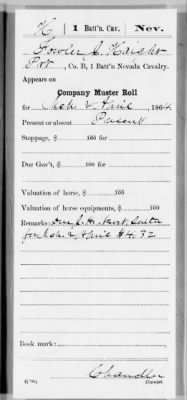 H | 1 | Batt'n. Cav. | Nev.
Fowler J. Harsh
Pvt, Co. B, 1 Batt'n Nevada Cavalry.
Appears on
Company Muster Roll
for Mch & April, 1864
Present or absent Present
Stoppage, $ 100 for
Due Gov't, $ 100 for
Valuation of horse, $ 100
Valuation of horse equipments, $ 100
Remarks: Due J. H. Sutler
for Mch & April $4.32
Book mark:
Chandler
Copyist.